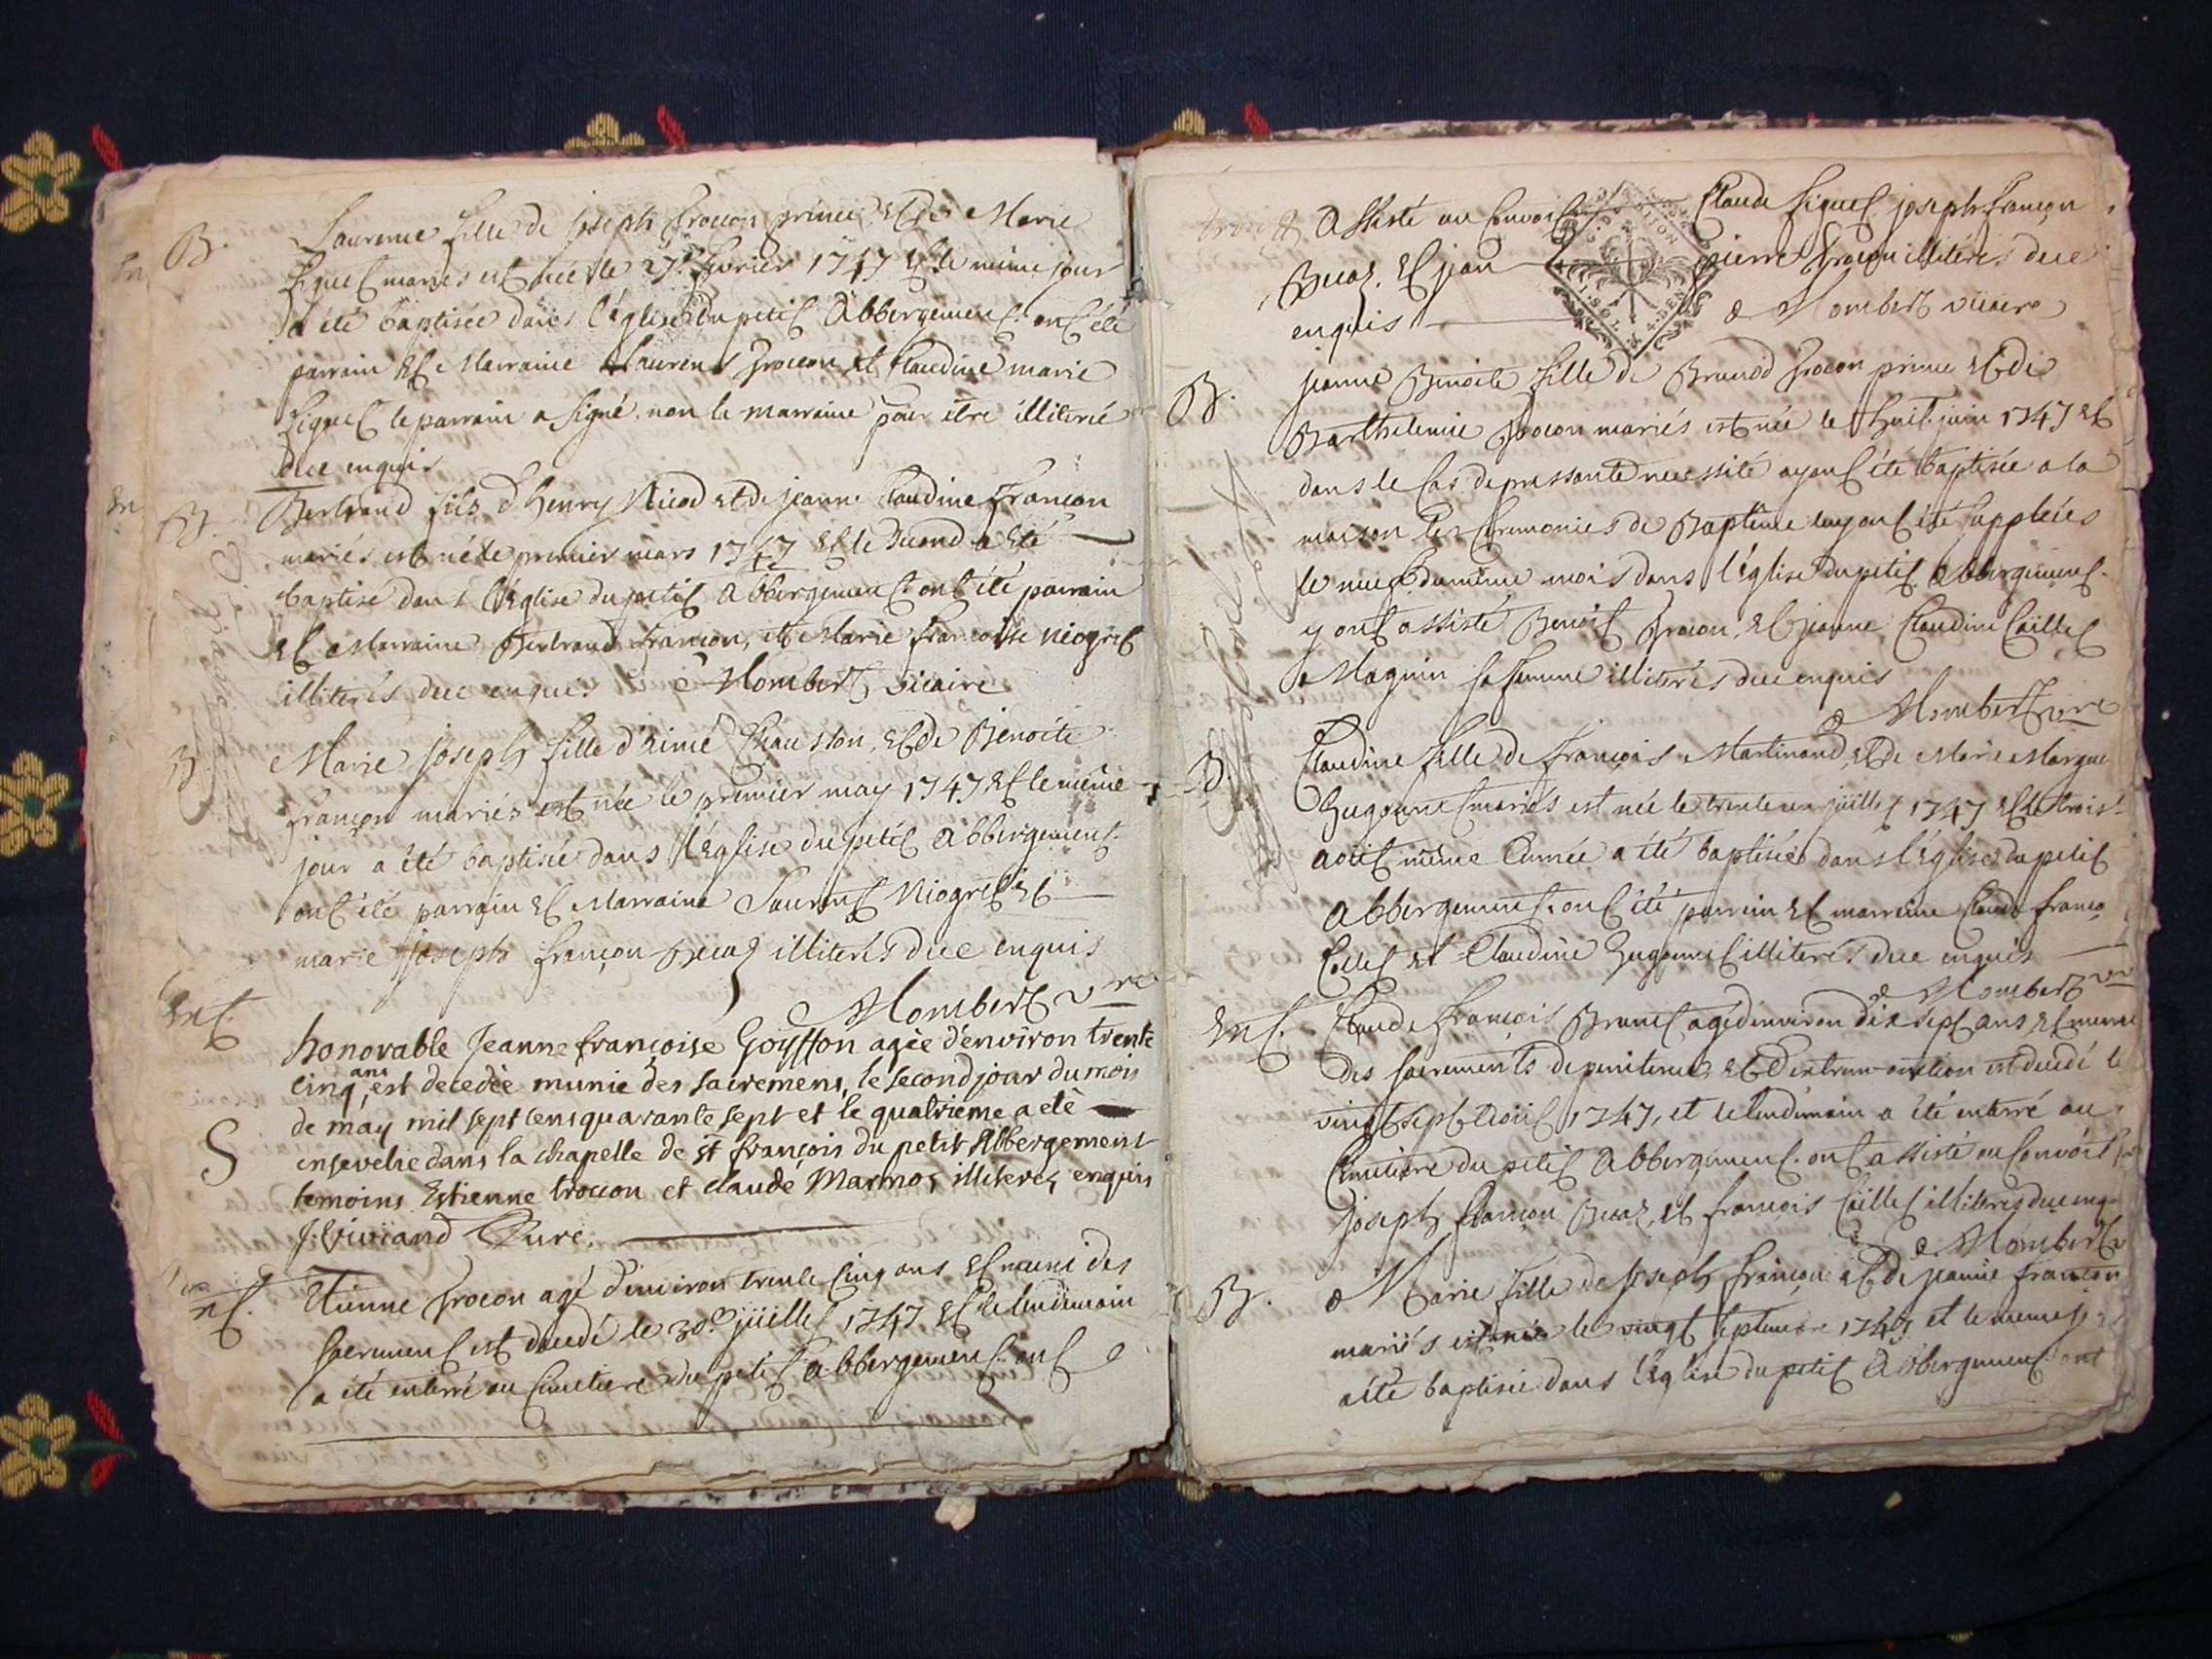 B. Laurence fille de joseph Trocon prince et de Marie
Siguet mariés est née le 27e fevrier 1747 et le même jour
a été baptisée dans l'église du petit Abbergement ont été
parrain et Marraine Laurent Trocon et Claudine marie
Siguet le parrain a signé non la marraine pour être illiterée
duc enquis
B. Bertrand fils d'henry Nicod et de jeanne Claudine françon
mariés est né le premier mars 1747 et le second a été
baptisé dans l'Eglise du petit Abbergement ont été parrain
et Marraine Bertrand françon, et Marie francoise Niogret
illiterés duc enquis Mombert vicaire
B. Marie joseph fille d'aimé et de Benoite
françon mariés est née le premier may 1747 et le même
jour a été baptisée dans l'Eglise du petit Abbergement
ont été parrain et Marraine Laurent Niogret et
marie joseph françon Becaz illiterés duc enquis
Mombert vre
Ent. honorable Jeanne françoise Goyffon agèe d'environ trente
cinq ans est decedèe munie des sacremens, le second jour du mois
de may mil sept cens quarante sept et le quatrieme a etè
S ensevelie dans la chapelle de st françois du petit Abbergement
temoins Estienne trocon et claude Marmos illiteres enquis
J. Viviand Cure.
Ent. Etienne Trocon agé d'environ trente cinq ans et muni des
sacrement est decedé le 30e juillet 1747 et le lendemain
a été enterré au Cimetiere du petit Abbergement ont
assisté au Convoit Claude Siguet joseph françon
Becaz, et jean pierre Trocon illiterés duc
enquis Mombert vicaire
B. jeanne Benoite fille de Trocon prince et de
Barthelemie Trocon mariés est née le huit juin 1747 et
dans le Cas de pressante necessité ayant été baptisée a la
maison les Ceremonies de Baptême luy ont été supplées
le neuf du même mois dans l'église du petit Abbergement
y ont assisté Benoit Trocon, et jeanne Claudine Caillet
Maquin sa femme illiterés duc enquis
Mombert vre
B. Claudine fille de françois Martinand et de Marie Margue
Gugonnet mariés est née le trente un juillet 1747 et le trois
août même année a été baptisée dans l'Eglise du petit
Abbergement ont été parrain et marraine Claude franço
Collet et Claudine Gugonnet illiterés duc enquis
Mombert vre
Ent. Claude François Brunet agé d'environ dix sept ans et muni
des sacrements de penitence et d'extrem-onction est decedé le
vingt sept aoüt 1747, et le lendemain a été enterré au
Cimetiere du petit Abbergement ont assisté au Convoit
joseph françon Becaz, et françois Caillet illiterés duc enq
Mombert v
B. Marie fille de joseph françon et de jeanne françon
mariés est née le vingt septembre 1747 et le meme jo
a été baptisée dans l'Eglise du petit Abbergement ont